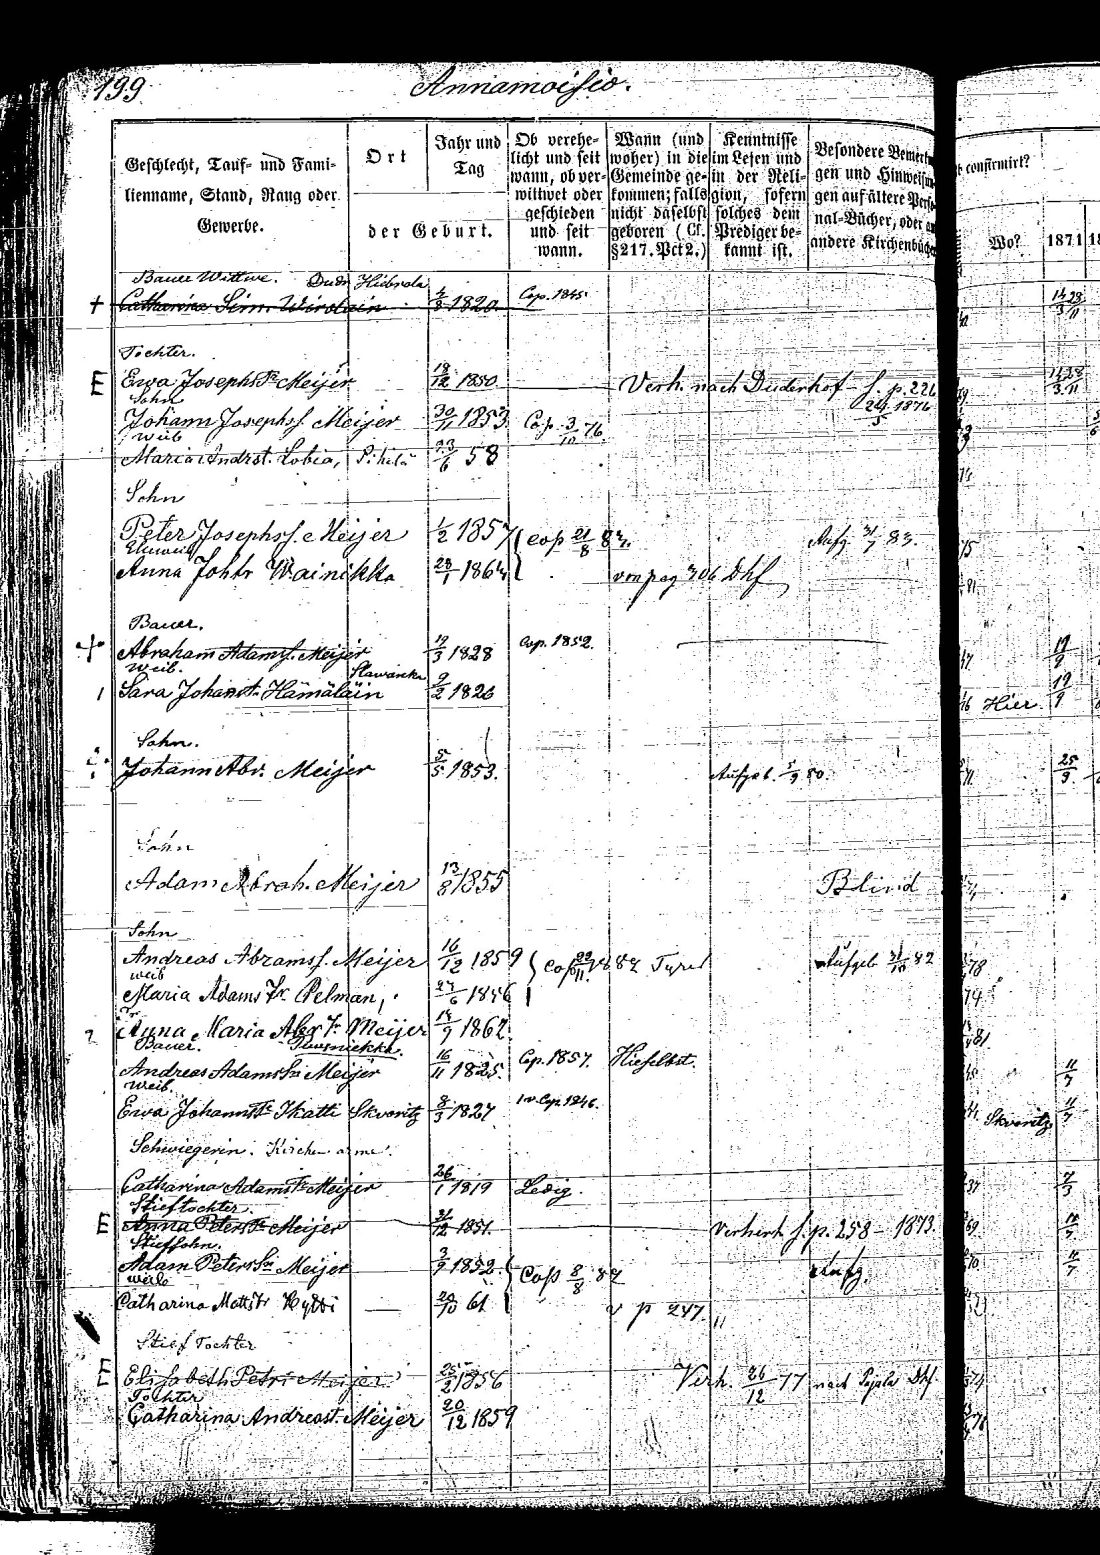 199.
Annamoisio.
Geschlecht, Tauf- und Fami-
lienname, Stand, Rang oder
Gewerbe.
Ort
der Geburt.
Jahr und
Tag
Ob verehe-
licht und seit
wann, ob ver-
wittwet oder
geschieden
und seit
wann.
Wann (und
woher) in die
Gemeinde ge-
kommen; falls
nicht daselbst
geboren (Cf.
§ 217. Pct 2.)
Kenntnisse
im Lesen und
in der Reli-
gion, sofern
solches dem
Prediger be-
kannt ist.
Besondere Bemerk
gen und Hinweisun
gen auf ältere Perso
nal-Bücher, oder an
andere Kirchenbüche
t confirmirt?
Wo?
1871
Bauer Wittwe.
+ Catharina Sim. 4/8 1820. Cop. 1845.
Tochter.
E Ewa Josephs Tr Meijer 18/12 1850 Verh. nach Duderhof s. p. 226
Sohn 24/5 1876
Johann Josephs. Meijer 30/11 1853 Cop. 3/10 76.
Weib
Maria Andrst. Lobia, 23/6 58
Sohn
Peter Josephs. Meijer 1/2 1857 cop 21/8 83. Aufg. 31/7 83.
Anna Johtr Wainikka 28/1 1864 von pag 306 Dhf
Bauer.
Abraham Adams. Meijer 19/3 1828 Cop. 1852.
Weib.
Sara Johanst. Hämäläin 9/2 1826 Hier
Sohn.
Johann Abr. Meijer 5/5 1853. Aufgeb. 5/9 80.
Sohn
Adam Abrah. Meijer 13/8 1855 Blind
Sohn
Andreas Abrams. Meijer 16/12 1859 Cop 22/11 1882 Tyrö Aufgeb 31/10 82
weib
Maria Adams Tr. Pelman, 27/6 1856
Anna Maria Alex Tr. Meijer 18/9 1862.
Bauer.
Andreas Adams Sn Meijer 16/11 1825. Cop. 1857. Hieselbst.
Weib.
Ewa Johanns Tr Ikatti Skvoritz 8/3 1827 Cop. 1846. Skvoritz
Schwiegerin. Kirchen arme.
Catharina Adams Tr Meijer 26/1 1819 Ledig.
Stieftochter.
E Anna Peters Tr Meijer 31/12 1851. Verheir. s. p. 258 – 1873.
Stiefsohn.
Adam Peters Sn Meijer 3/9 1852. Cop 8/8 82 Aufg.
weib
Catharina Mattstr Hytti 20/10 61 v p 247.
Stief Tochter
E Elisabeth Petri Meijer 25/2 1856 Verh. 26/12 77 nach Pajola Dhf.
Tochter
Catharina Andreast. Meijer 20/12 1859